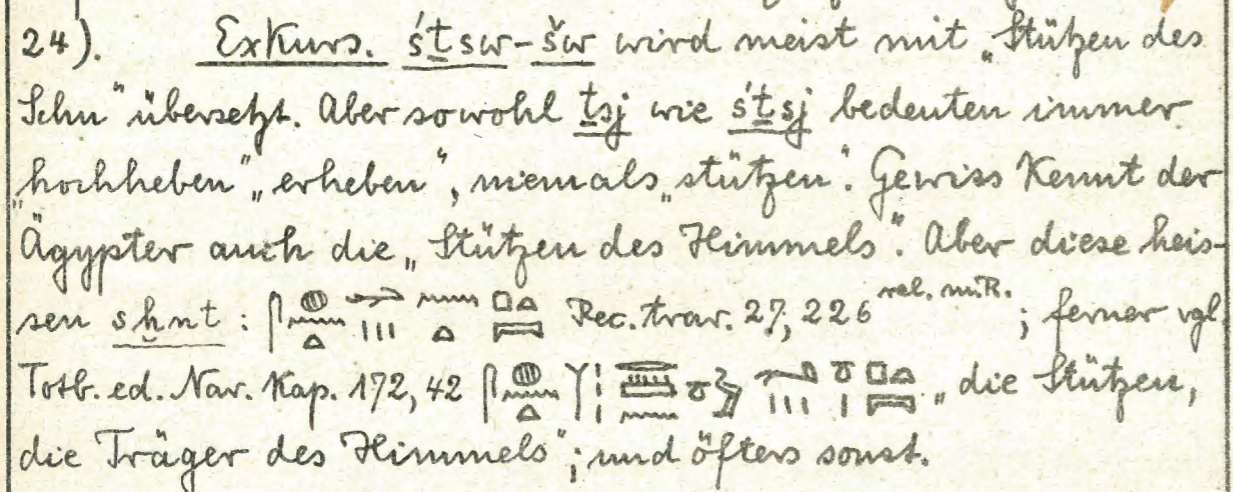 24). Exkurs. śṯsw-šw wird meist mit „Stützen des
Schu" übersetzt. Aber sowohl ṯsj wie śṯsj bedeuten immer
„hochheben", „erheben", niemals „stützen". Gewiss kennt der
Ägypter auch die „Stützen des Himmels". Aber diese heis-
sen sẖnt: Rec. trav. 27, 226 rel. m.R.; ferner vgl.
Totb. ed. Nav. Kap. 172, 42 „die Stützen,
die Träger des Himmels"; und öfters sonst.